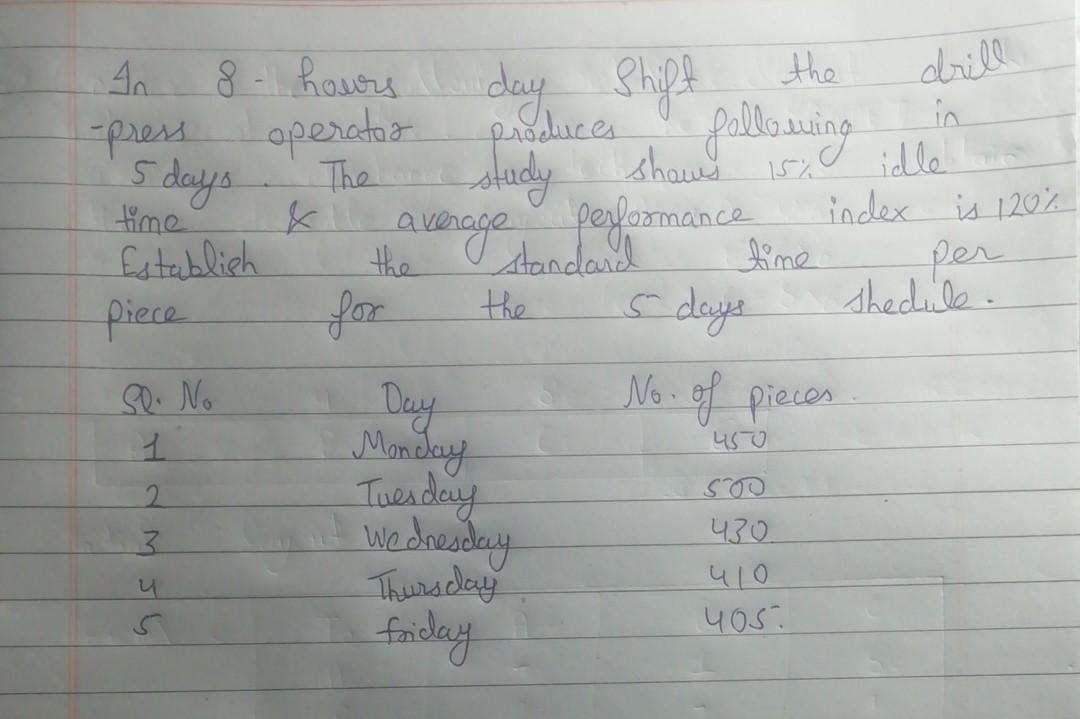 In 8 - hours day Shift the drill
-press operator produces following in
5 days. The study shows 15% idle
time & average performance index is 120%
Establish the standard time per
piece for the 5 days shedule.
Sl. No Day No. of pieces.
1 Monday 450
2 Tuesday 500
3 Wednesday 430
4 Thursday 410
5 friday 405.